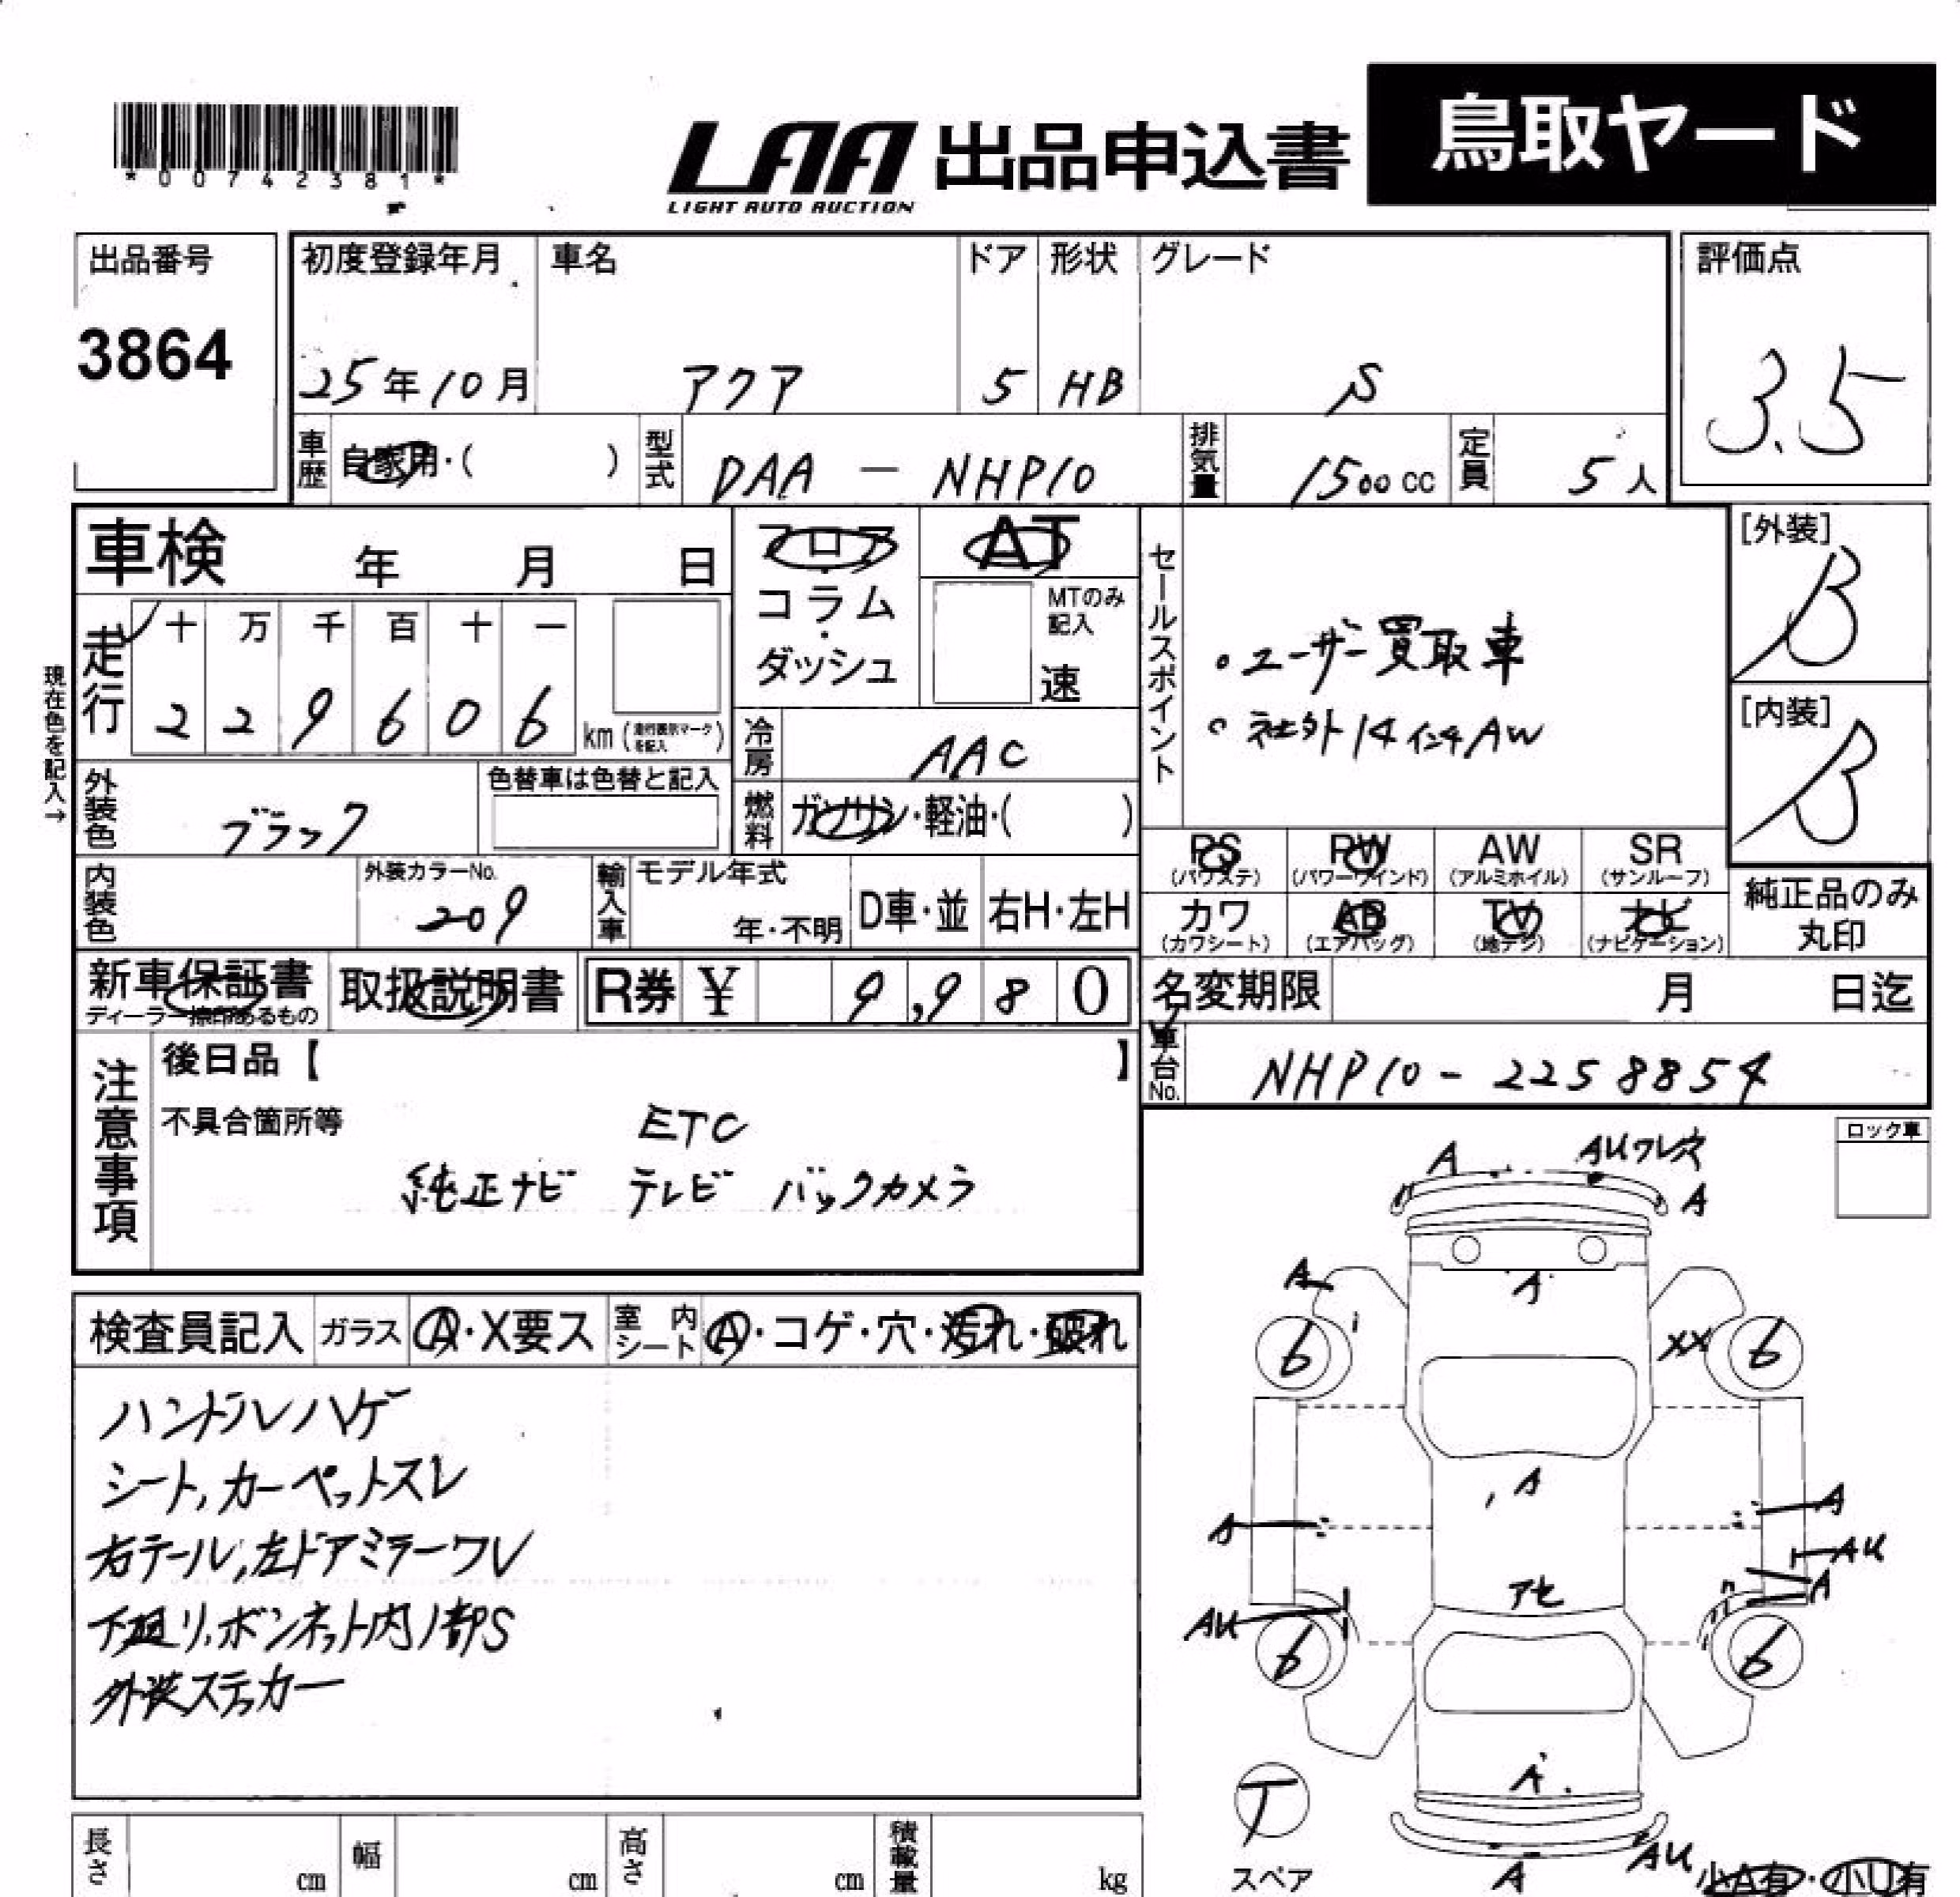 *00742381*
LAA 出品申込書 鳥取ヤード
LIGHT AUTO AUCTION
出品番号 初度登録年月 車名 ドア 形状 グレード 評価点
3864 25年10月 アクア 5 HB S 3.5
車歴 自家用・( ) 型式 DAA - NHP10 排気量 1500cc 定員 5人
車検 年 月 日 フロア・コラム・ダッシュ AT
MTのみ記入 速
セールスポイント
・ユーザー買取車
・社外14インチAW
[外装] B
[内装] B
現在色を記入→
走行 十 万 千 百 十 一
2 2 9 6 0 6 km (走行表示マークを記入)
冷房 AAC
外装色 ブラック 色替車は色替と記入
燃料 ガソリン・軽油・( )
PS (パワステ) PW (パワーウインド) AW (アルミホイル) SR (サンルーフ)
カワ (カワシート) AB (エアバッグ) TV (地デジ) ナビ (ナビゲーション)
純正品のみ丸印
内装色 外装カラーNo. 209 輸入車 モデル年式 年・不明 D車・並 右H・左H
新車保証書 ディーラー捺印あるもの 取扱説明書 R券 ¥ 9,980
名変期限 月 日迄
車台No. NHP10-2258854
注意事項 後日品【 】
不具合箇所等 ETC
純正ナビ テレビ バックカメラ
ロック車
検査員記入 ガラス A・X要ス 室内シート A・コゲ・穴・汚れ・破れ
ハンドルハゲ
シート,カーペットスレ
右テール,左ドアミラーワレ
下廻り,ボンネット内ノ部S
外装ステッカー
A AUワレ
A
A A
6 XX 6
A
A A
AU
アセ A
AU
6 6
A
T
スペア
A AU 小A有・小U有
長さ cm 幅 cm 高さ cm 積載量 kg